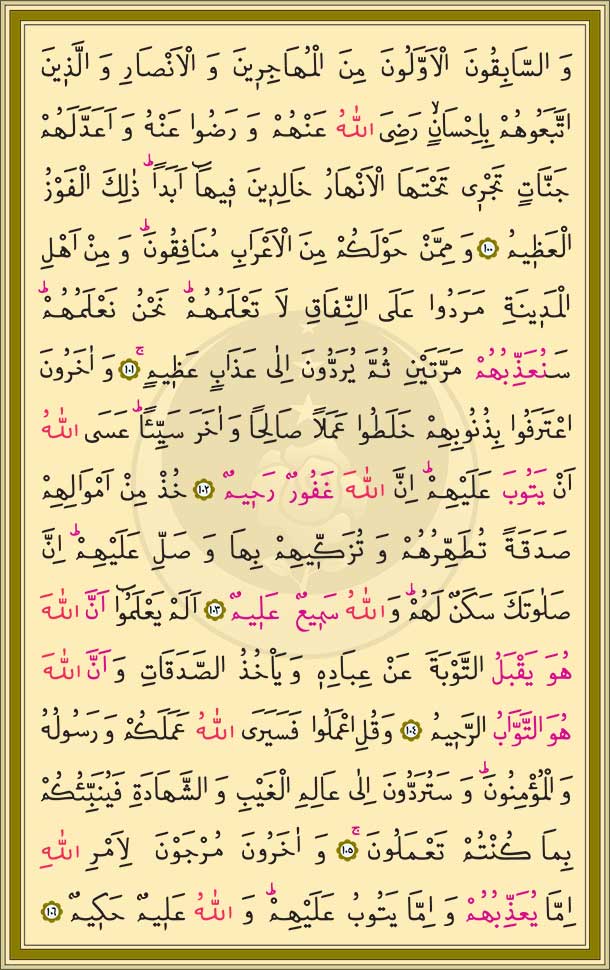 وَ السَّابِقُونَ الْاَوَّلُونَ مِنَ الْمُهَاجِر۪ينَ وَ الْاَنْصَارِ وَ الَّذ۪ينَ
اتَّبَعُوهُمْ بِاِحْسَانٍۙ رَضِىَ اللّٰهُ عَنْهُمْ وَ رَضُوا عَنْهُ وَ اَعَدَّلَهُمْ
جَنَّاتٍ تَجْر۪ى تَحْتَهَا الْاَنْهَارُ خَالِد۪ينَ ف۪يهَٓا اَبَداًۜ ذٰلِكَ الْفَوْزُ
الْعَظ۪يمُ ﴿١٠٠﴾ وَ مِمَّنْ حَوْلَكُمْ مِنَ الْاَعْرَابِ مُنَافِقُونَۜ وَ مِنْ اَهْلِ
الْمَد۪ينَةِ مَرَدُوا عَلَى النِّفَاقِ لَا تَعْلَمُهُمْۜ نَحْنُ نَعْلَمُهُمْۜ
سَنُعَذِّبُهُمْ مَرَّتَيْنِ ثُمَّ يُرَدُّونَ اِلٰى عَذَابٍ عَظ۪يمٍۚ ﴿١٠١﴾ وَ اٰخَرُونَ
اعْتَرَفُوا بِذُنُوبِهِمْ خَلَطُوا عَمَلاً صَالِحًا وَ اٰخَرَ سَيِّئًاۜ عَسَى اللّٰهُ
اَنْ يَتُوبَ عَلَيْهِمْۜ اِنَّ اللّٰهَ غَفُورٌ رَح۪يمٌ ﴿١٠٢﴾ خُذْ مِنْ اَمْوَالِهِمْ
صَدَقَةً تُطَهِّرُهُمْ وَ تُزَكّ۪يهِمْ بِهَا وَ صَلِّ عَلَيْهِمْۜ اِنَّ
صَلٰوتَكَ سَكَنٌ لَهُمْۜ وَ اللّٰهُ سَم۪يعٌ عَل۪يمٌ ﴿١٠٣﴾ اَلَمْ يَعْلَمُٓوا اَنَّ اللّٰهَ
هُوَ يَقْبَلُ التَّوْبَةَ عَنْ عِبَادِه۪ وَ يَاْخُذُ الصَّدَقَاتِ وَ اَنَّ اللّٰهَ
هُوَ التَّوَّابُ الرَّح۪يمُ ﴿١٠٤﴾ وَ قُلِ اعْمَلُوا فَسَيَرَى اللّٰهُ عَمَلَكُمْ وَ رَسُولُهُ
وَ الْمُؤْمِنُونَۜ وَ سَتُرَدُّونَ اِلٰى عَالِمِ الْغَيْبِ وَ الشَّهَادَةِ فَيُنَبِّئُكُمْ
بِمَا كُنْتُمْ تَعْمَلُونَۚ ﴿١٠٥﴾ وَ اٰخَرُونَ مُرْجَوْنَ لِاَمْرِ اللّٰهِ
اِمَّا يُعَذِّبُهُمْ وَ اِمَّا يَتُوبُ عَلَيْهِمْۜ وَ اللّٰهُ عَل۪يمٌ حَك۪يمٌ ﴿١٠٦﴾